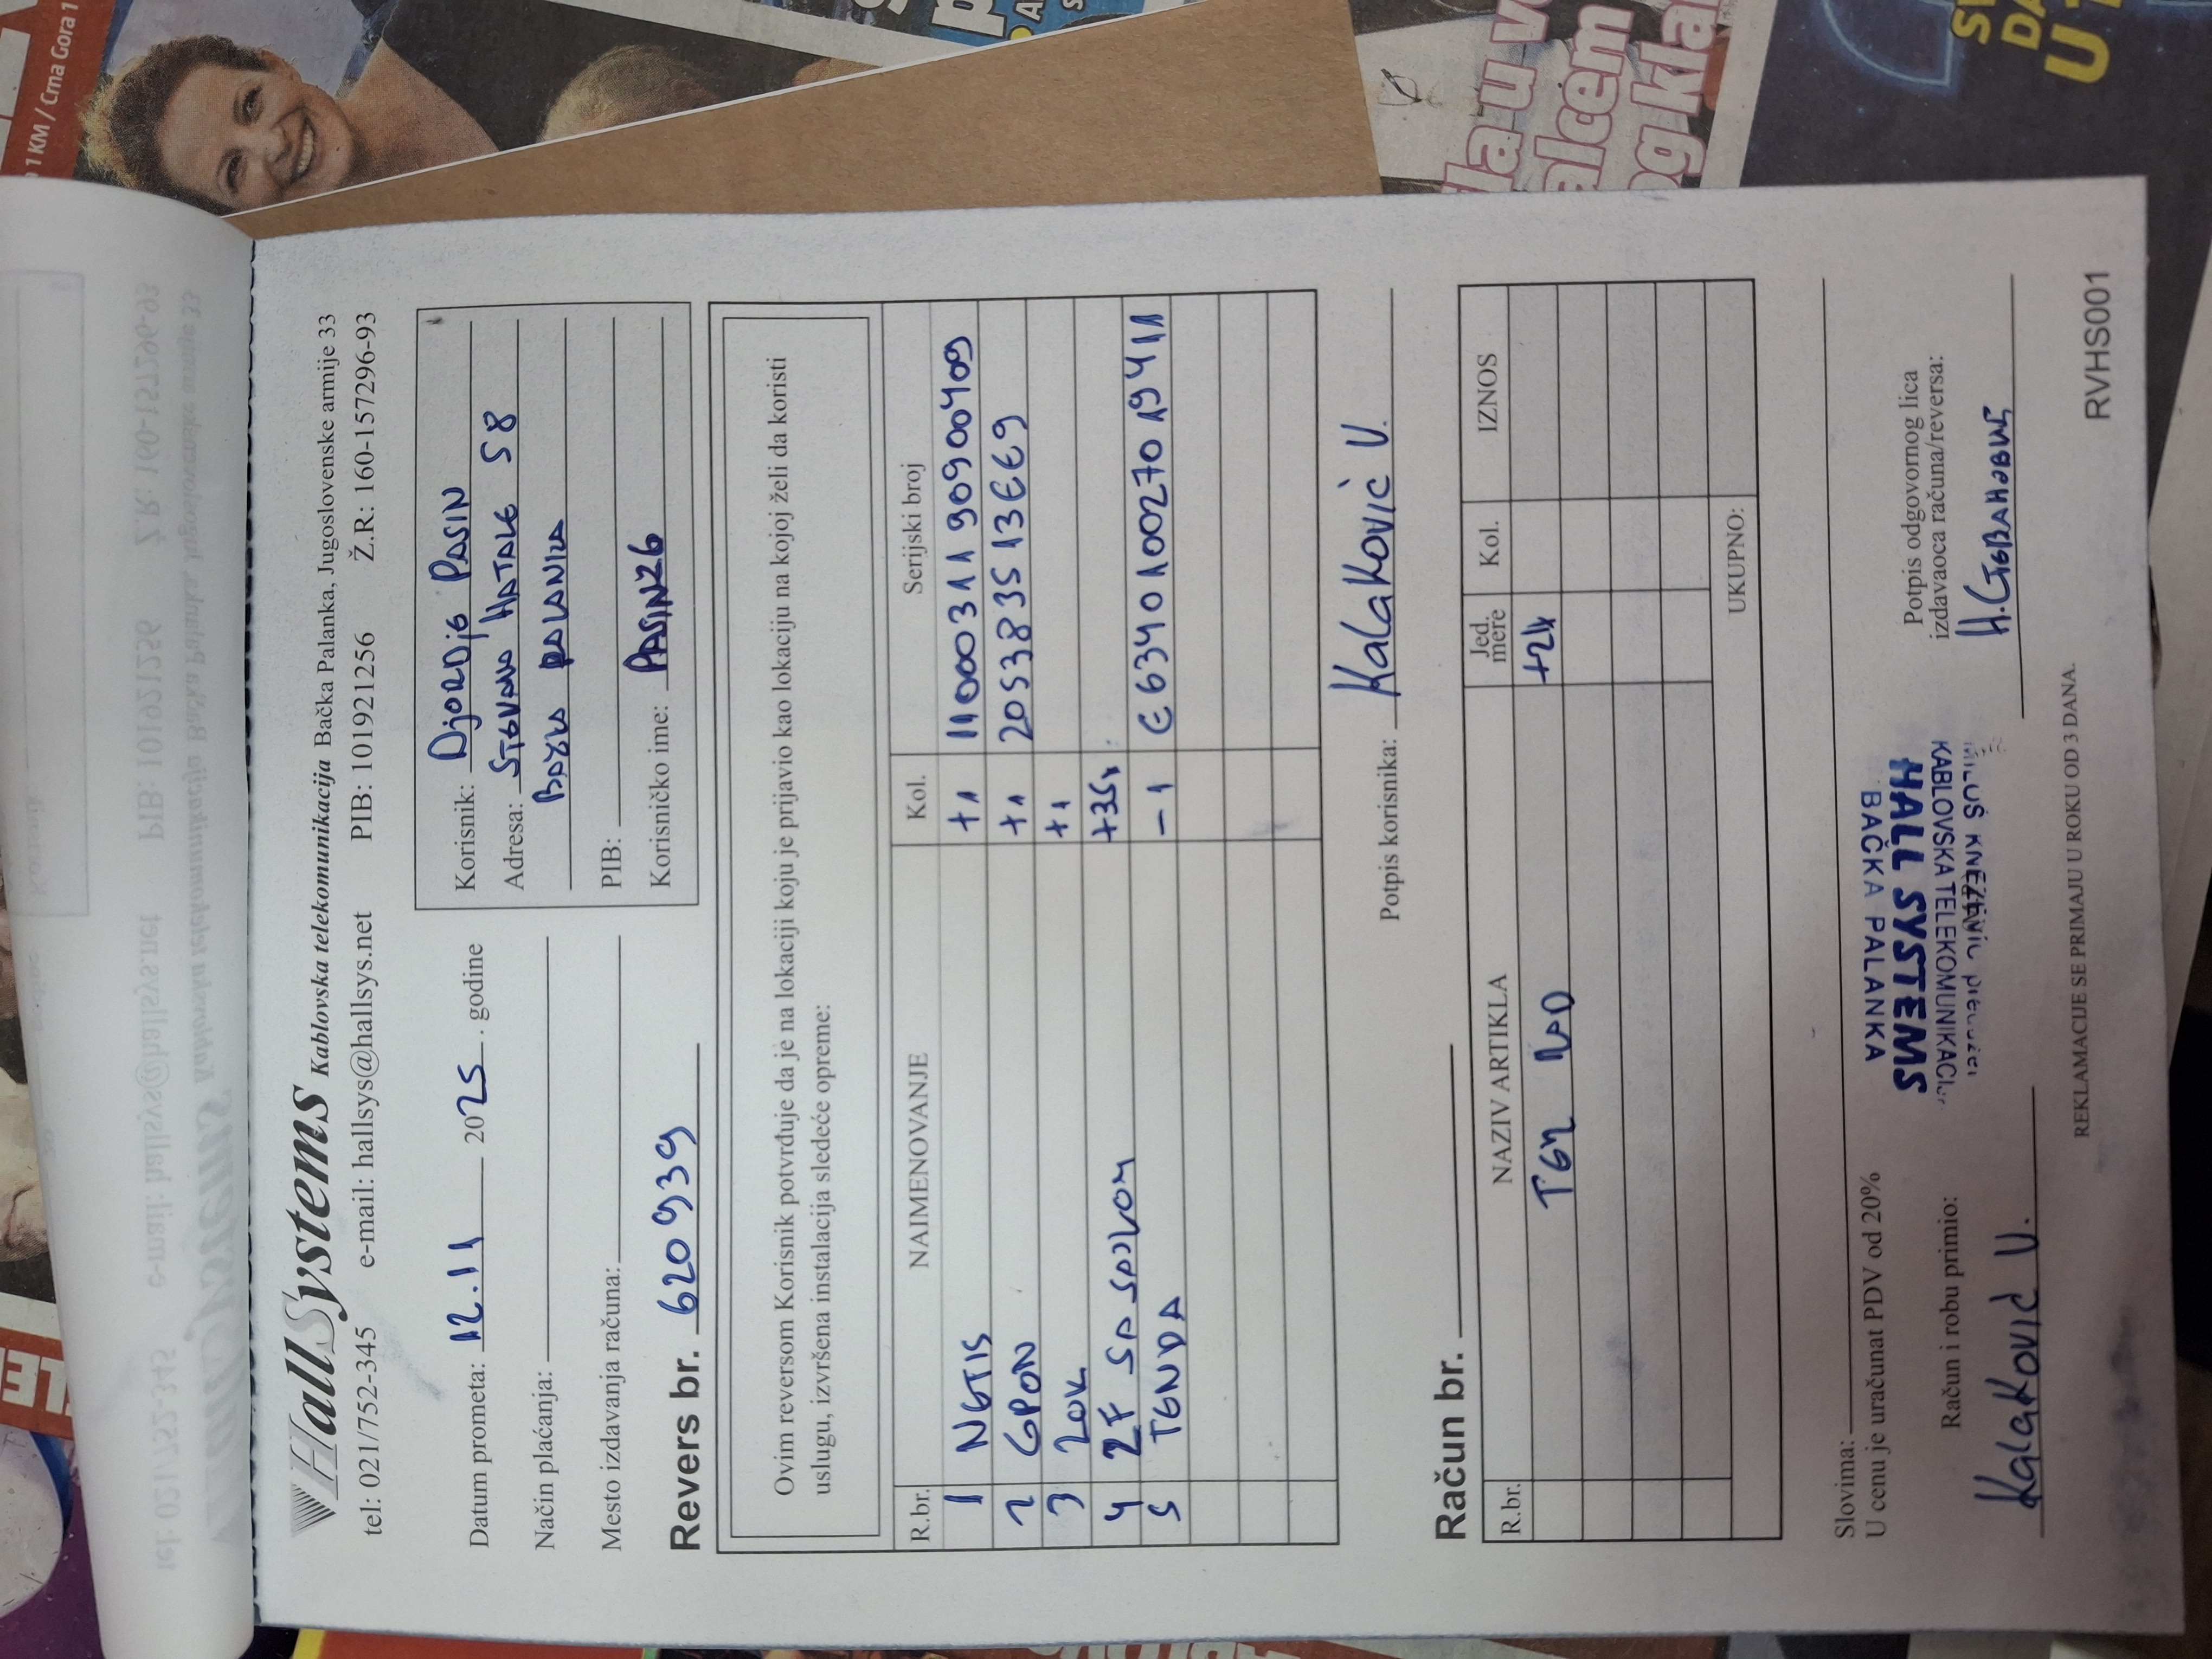 HallSystems Kablovska telekomunikacija Bačka Palanka, Jugoslovenske armije 33
tel: 021/752-345 e-mail: hallsys@hallsys.net PIB: 101921256 Ž.R: 160-157296-93
Datum prometa: 12.11 2025. godine
Način plaćanja:
Mesto izdavanja računa:
Korisnik: Djordje PASIN
Adresa: STEVANA 58
PALANKA
PIB:
Korisničko ime: PASIN26
Revers br. 620939
Ovim reversom Korisnik potvrđuje da je na lokaciji koju je prijavio kao lokaciju na kojoj želi da koristi
uslugu, izvršena instalacija sledeće opreme:
R.br. NAIMENOVANJE Kol. Serijski broj
1 NETIS +1 1100031190900409
2 GPON +1 205383513EE9
3 ZOK +1
4 2F SA SAJLOM
5 TENDA -1 E634010027019411
Potpis korisnika: Kalaković V.
Račun br.
R.br. NAZIV ARTIKLA Jed. mere Kol. IZNOS
RAD
UKUPNO:
Slovima:
U cenu je uračunat PDV od 20%
Račun i robu primio:
Kalaković V.
KABLOVSKA TELEKOMUNIKACI
HALL SYSTEMS
BAČKA PALANKA
Potpis odgovornog lica
izdavaoca računa/reversa:
REKLAMACIJE SE PRIMAJU U ROKU OD 3 DANA.
RVHS001
1 KM / Crna Gora 1